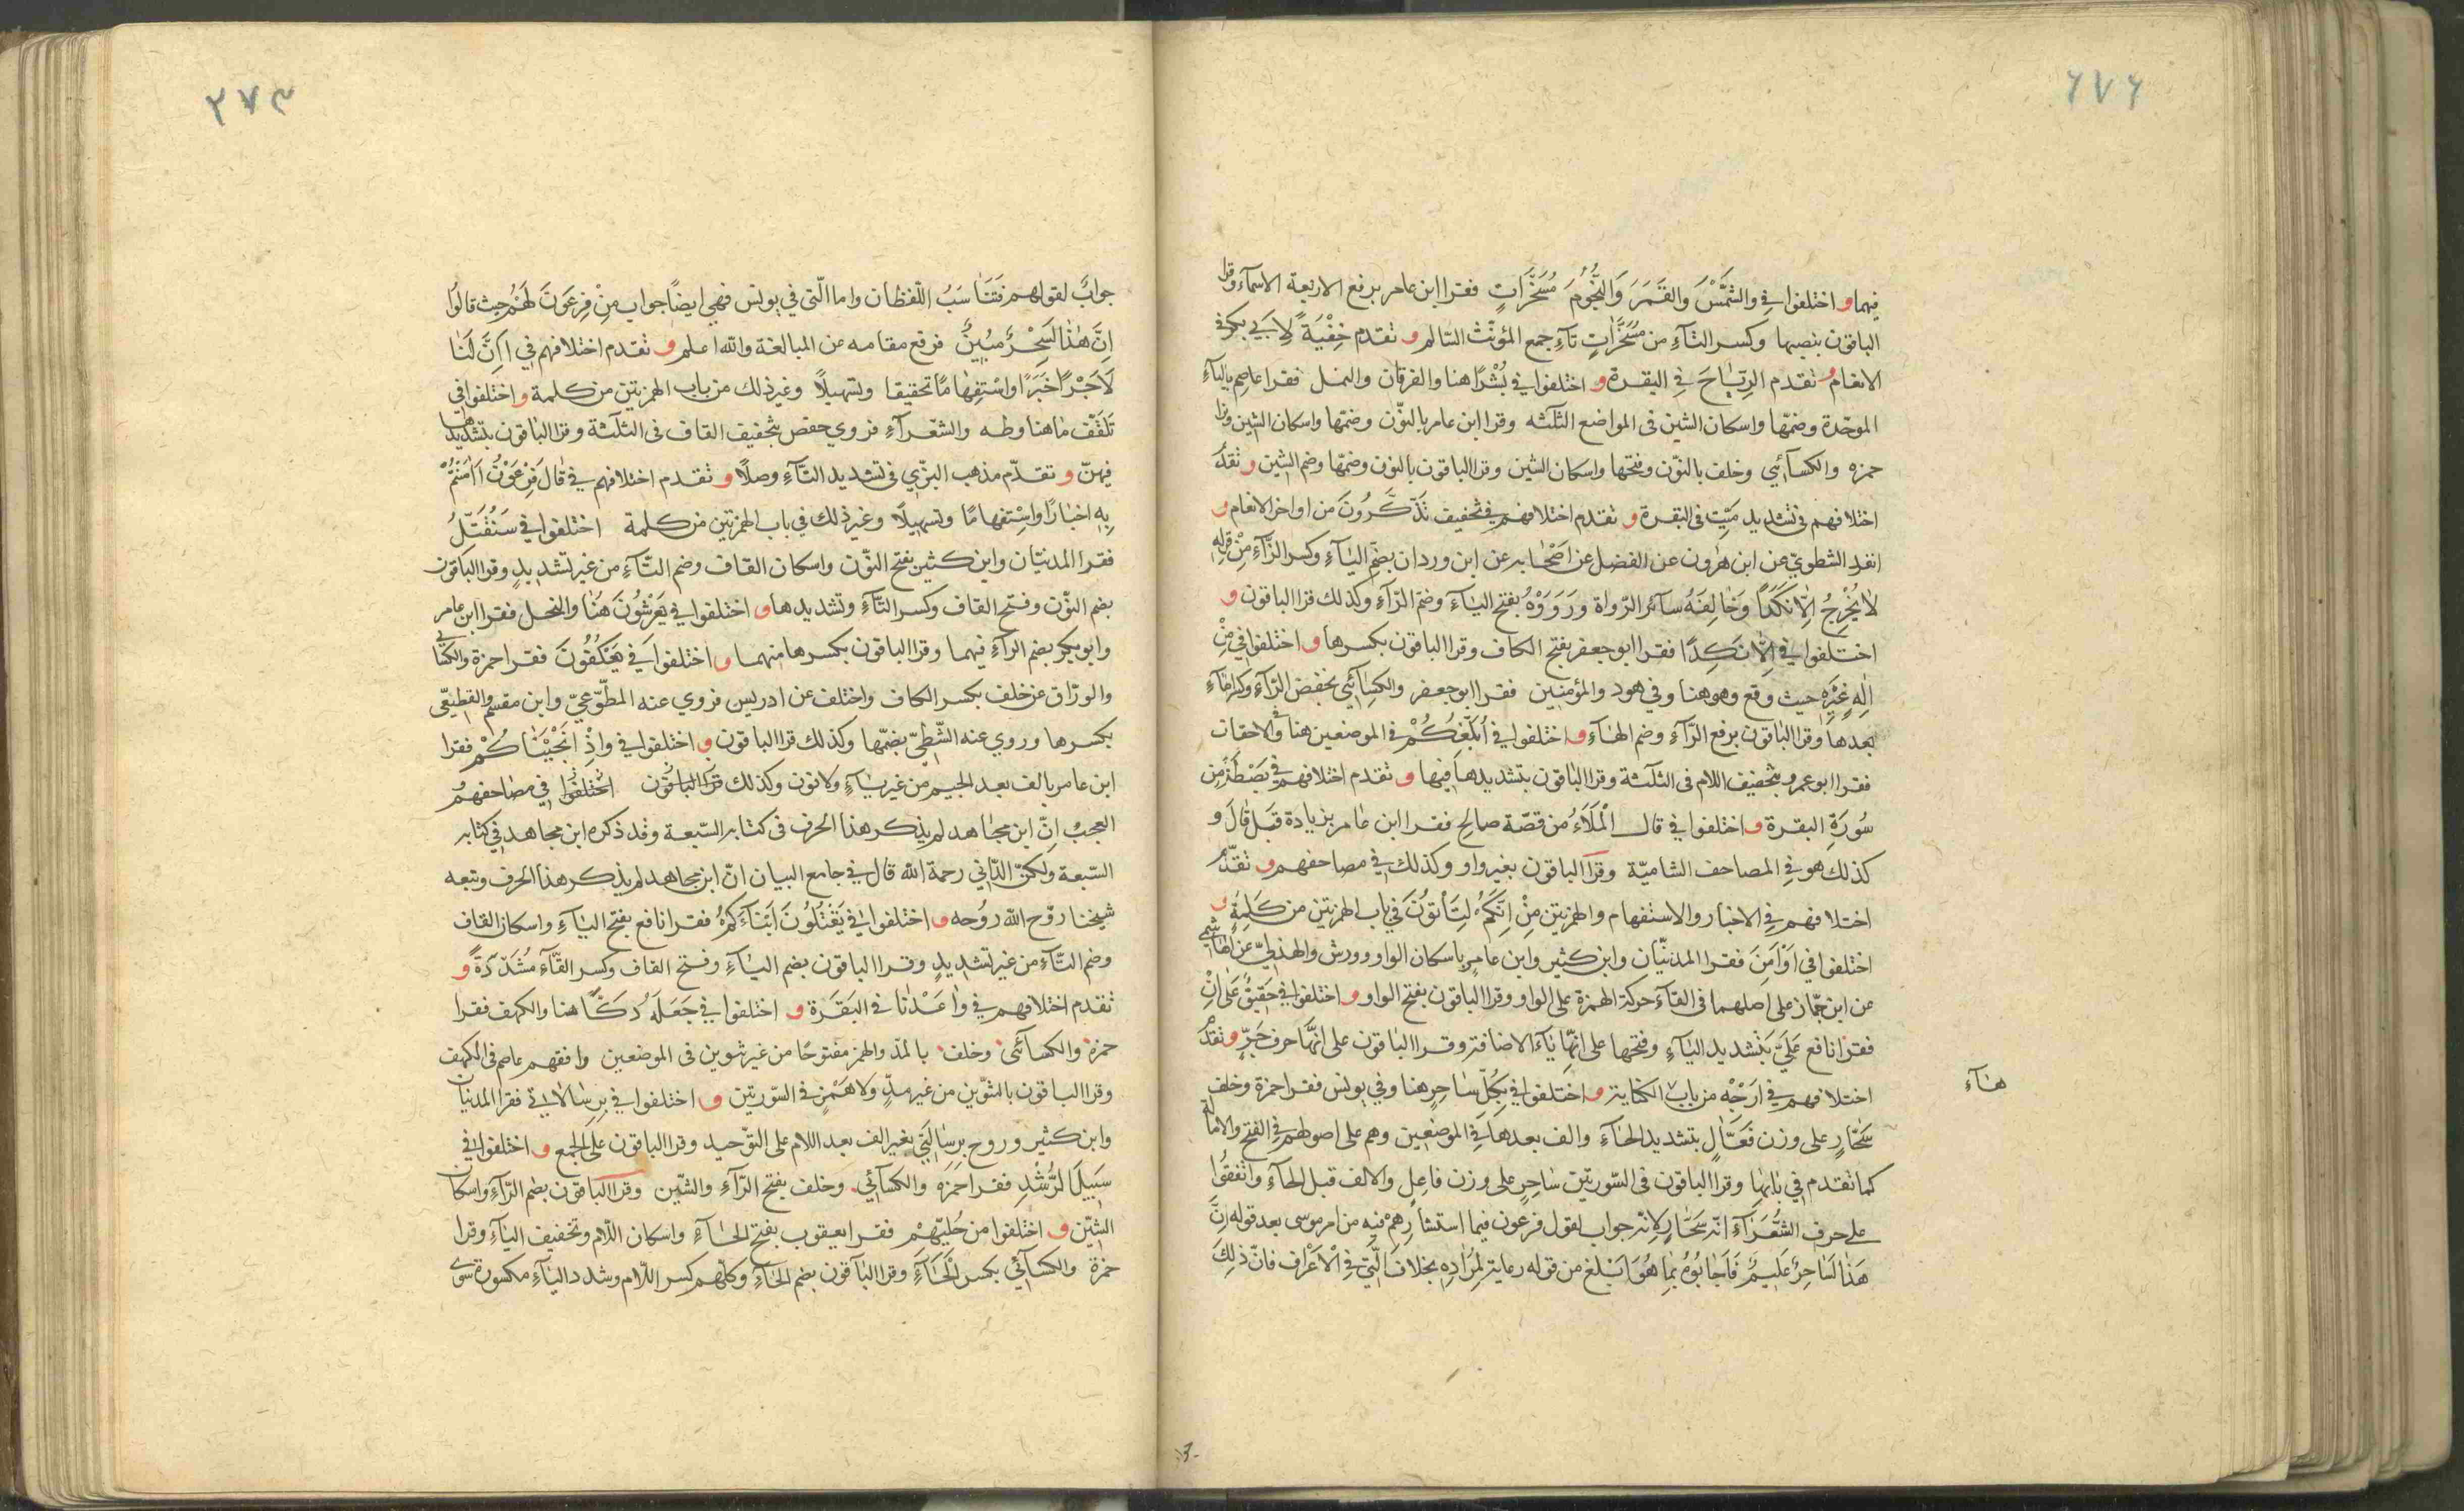 ٦٧٦
فيهما و اختلفوا في والشَّمْسَ والقَمَرَ وَالنُّجُومَ مُسَخَّرَاتٍ فقرا ابن عامر برفع الاربعة الاسمآء وقرا
الباقون بنصبها وكسر التآءِ من مُسَخَّرَاتٍ تآءِ جمع المؤنّث السّالم و تقدم خِفْيَةً لِاَبي بكر في
الانعام و تقدم الرِيَاحَ في البقرة و اختلفوا في بُشْرًا هنا والفرقان والنمل فقرا عاصم بالبآءِ
الموحّدة وضمّها واسكان الشين في المواضع الثلثه وقرا ابن عامر بالنّون وضمّها واسكان الشين وقرا
حمزه والكسآئي وخلف بالنّون وفتحها واسكان الشين وقرا الباقون بالنون وضمّها وضم الشين و تقدّم
اختلافهم في تشديد مَيِّتٍ في البقرة و تقدم اختلافهم في تخفيف تَذَكَّرُونَ من اواخر الانعام و
انفرد الشطوي عن ابن هٰرون عن الفضل عن اصْحَابه عن ابن وردان بضم اليآءِ وكسر الرّآءِ مِنْ قوله
لَا يُخْرِجُ اِلّا نَكَدًا وَخَالفَهُ سآئر الرّواة وَرَوَوْهُ بفتح اليآءِ وضم الرّآءِ وكذلك قرا الباقون و
اختلفوا في اِلّا نَكِدًا فقرا ابوجعفر بفتح الكاف وقرا الباقون بكسرها و اختلفوا في مِنْ
اِلٰهٍ غَيْرِهِ حيث وقع وهو هنا وفي هود والمؤمنين فقرا ابوجعفر والكِسآئي بخفض الرّآءِ وكسر الهآءِ
بعدها وقرا الباقون برفع الرّآءِ وضم الهآءِ و اختلفوا في اُبَلِّغُكُمْ في الموضعين هنا وفي الاحقاف
فقرا ابو عمرو بتخفيف اللام في الثلثة وقرا الباقون بتشديدها فيها و تقدم اختلافهم في بَصْطَةً من
سُورَةِ البقرة و اختلفوا في قال الْمَلَاءُ من قصّة صالح فقرا ابن عامر بزيادة قبل قَالَ و
كذلك هو في المصاحف الشاميّة وقرا الباقون بغير واو وكذلك في مصاحفهم و تقدّم
اختلافهم في الاخبار والاستفهام والهمزتين مِنْ اِنَّكُمْ لَتَأْتُوْنَ في باب الهمزتين من كَلِمَةٍ و
اختلفوا في اَوْ اَمِنَ فقرا المدنيّان وابن كثير وابن عامر باسكان الواو وورش والهذلي عن الهاشمي
عن ابن جمّاز على اصلهما في القآء حركة الهمزة على الواو وقرا الباقون بفتح الواو و اختلفوا في حَقيقٌ عَلىٰ اَنْ
فقرا نافع عَلَيَّ بتشديد اليآءِ وفتحها على انّها يآء الاضافة وقرا الباقون على انّها حرف جَرٍّ و تقدّم
اختلافهم في اَرْجِهْ من باب الكناية و اختلفوا في بِكُلِّ سَاحِرٍ هنا وفي يونس فقرا حمزة وخلف
هنآءِ
سَحّارٍ على وزن فَعَّالٍ بتشديد الحآءِ والف بعدها في الموضعين وهم على اصولهم في الفتح والامالة
كما تقدم في بابها وقرا الباقون في السّورتين سَاحِرٍ على وزن فاعِلٍ والالف قبل الحآءِ واتّفقوا
على حرف الشُّعَرَآءِ انّه سَحّارٍ لانّه جواب لقول فرعون فيما استشارهم فيه من امر موسى بعد قوله اِنَّ
هَذا لَسَاحِرٌ عَليمٌ فَاَجَابُوهُ بِمَا هُوَ اَبْلغ من قوله رعاية لِمُرَادِهِ بخلاف الّتي في الْاَعْرَاف فانّ ذلِكَ
٢٧٣
جوابٌ لقولهم فتنَاسَبُ اللّفظان واما الّتي في يونس فهي ايضاً جواب مِنْ فِرْعَوْنَ لَهُمْ حيث قالُوا
اِنَّ هٰذا لَسِحْرٌ مُبينٌ فرفع مقامه عن المبالغة والله اعلم و تقدم اختلافهم في اَاِنَّ لَنَا
لَاَجْرًا خَبَرًا واسْتِفهَامًا تحقيقا وتسهيلًا وغير ذلك من باب الهمزتين من كلمة و اختلفوا في
تَلقَفْ مَا هنا وطه والشّعرآءِ فروي حفص بتخفيف القاف في الثلثة وقرا الباقون بتشديدها
فيهنّ و تقدّم مذهب البزّي في تشديد التّآءِ وصلًا و تقدم اختلافهم في قالَ فِرْعَوْنُ ءَاٰمَنْتُمْ
بِهِ اخبارًا واسْتِفهامًا وتسهيلًا وغير ذلك في باب الهمزتين من كلمة اختلفوا في سَنُقَتِّلُ
فقرا المدنيّان وابن كثير بفتح النّون واسكان القاف وضم التّآءِ من غير تشديدٍ وقرا الباقون
بضم النّون وفتح القاف وكسر التّآءِ وتشديدها و اختلفوا في يَعْرِشُونَ هُنَا والنحل فقرا ابن عامر
وابو بكر بضم الرّآءِ فيهما وقرا الباقون بكسرها منهما و اختلفوا في يَعْكُفُونَ فقرا حمزة والكسائي
والورّاق عن خلف بكسر الكاف واختلف عن ادريس فروي عنه المطّوّعيّ وابن مقسم والقطيعّي
بكسرها وروي عنه الشّطيّ بضمّها وكذلك قرا الباقون و اختلفوا في وَاِذْ اَنْجَيْنَاكُمْ فقرا
ابن عامر بالف بعد الجيم من غير يآءٍ ولا نون وكذلك قرا الباقون اختلفوا في مصاحفهم
العجبُ اِنّ ابن مجاهد لم يذكر هذا الحرف في كتابه السّبعة وقد ذكره ابن مجاهد في كتابه
السّبعة ولكنّ الدّاني رحمة الله قال في جامع البيان انّ ابن مجاهد لم يذكر هذا الحرف وتبعه
شيخنا روّح الله رُوحه و اختلفوا في يَقْتُلُونَ اَبْنَآءَكُمْ فقرا نافع بفتح اليآءِ واسكان القاف
وضم التّآءِ من غير تشديدٍ وقرا الباقون بضم اليآءِ وفتح القاف وكسر التّآءِ مُشَدَّدَةً و
تقدم اختلافهم في وٰاعَدْنا في البَقَرَة و اختلفوا في جَعَلَهُ دَكًّا هنا والكهف فقرا
حمزة والكسآئي وخلف بالمَدّ والهمز مفتوحًا من غير تنوين في الموضعين وافقهم عاصم في الكهف
وقرا الباقون بالتنّوين من غير مدٍّ ولا هَمْزٍ في السّورتين و اختلفوا في بِرِسَالاتي فقرا المدنيان
وابن كثير وروح بِرِسَالَتي بغير الف بعد اللام على التّوحيد وقرا الباقون على الجمع و اختلفوا في
سَبيلَ الرُّشْدِ فقرا حمزه والكسآئي وخلف بفتح الرّآءِ والشّين وقرا الباقون بضم الرّآءِ واسكان
الشيّن و اختلفوا من حُلِيِّهِمْ فقرا يعقوب بفتح الحآءِ واسكان اللّام وتخفيف اليآءِ وقرا
حمزة والكسآئي بكسر الحَآءِ وقرا الباقون بضم الحآءِ وكلّهم كسر اللّام وشدد اليآءِ مكسورة سوى